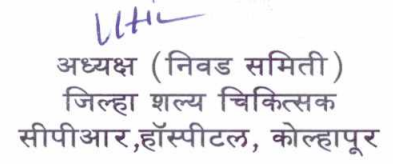 अध्यक्ष (निवड समिती)
जिल्हा शल्य चिकित्सक
सीपीआर,हॉस्पीटल, कोल्हापूर